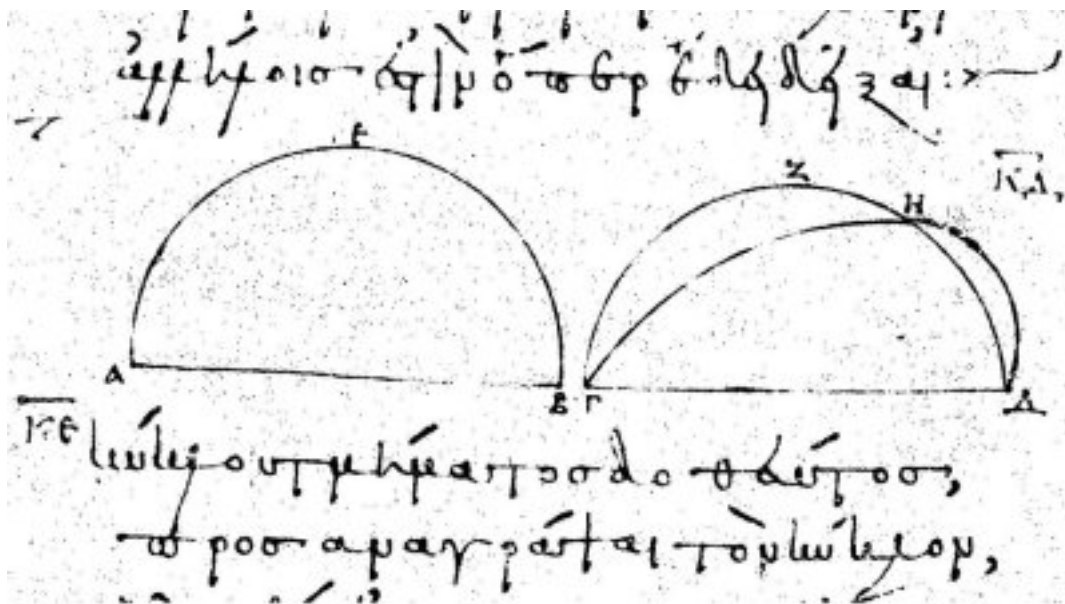 ἀλλήλοισ ἐστὶν ὅπερ ἔδει δεῖξαι:
Ε
Ζ
Η
ΚΔ
Α
Β
Γ
Δ
ΚΕ
κύκλου τμήματοσ δοθέντοσ,
προσαναγράψαι τὸν κύκλον,